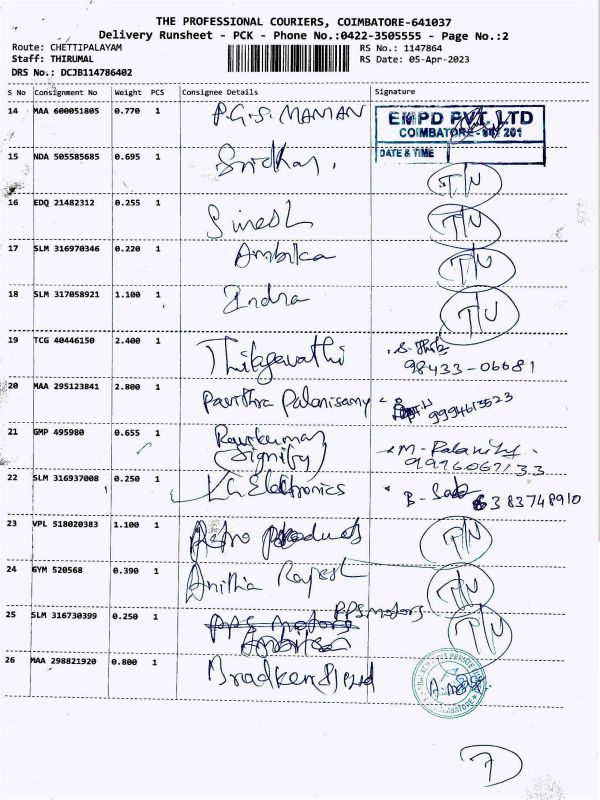 THE PROFESSIONAL COURIERS, COIMBATORE-641037
Delivery Runsheet - PCK - Phone No.:0422-3505555 - Page No.:2
Route: CHETTIPALAYAM
Staff: THIRUMAL
DRS No.: DCJB114786402
RS No.: 1147864
RS Date: 05-Apr-2023
S No Consignment No Weight PCS Consignee Details Signature
14 MAA 600051805 0.770 1 P.G.S. MANIAN
EMPD PVT. LTD
COIMBATORE - 201
DATE & TIME
15 NDA 505585685 0.695 1 Sridhar
16 EDQ 21482312 0.255 1
17 SLM 316970346 0.220 1 Ambika
18 SLM 317058921 1.100 1 Indra
19 TCG 40446150 2.400 1 Thilagavathi
98433-06681
20 MAA 295123841 2.800 1 Pavithra Palanisamy
21 GMP 495980 0.655 1 Ravikumar
(Signify)
22 SLM 316937008 0.250 1 Electronics 6383748910
23 VPL 518020383 1.100 1 Products
24 GYM 520568 0.390 1 Anitha Rajesh
25 SLM 316730399 0.250 1 PPS motors PPS motors
Ambika
26 MAA 298821920 0.800 1